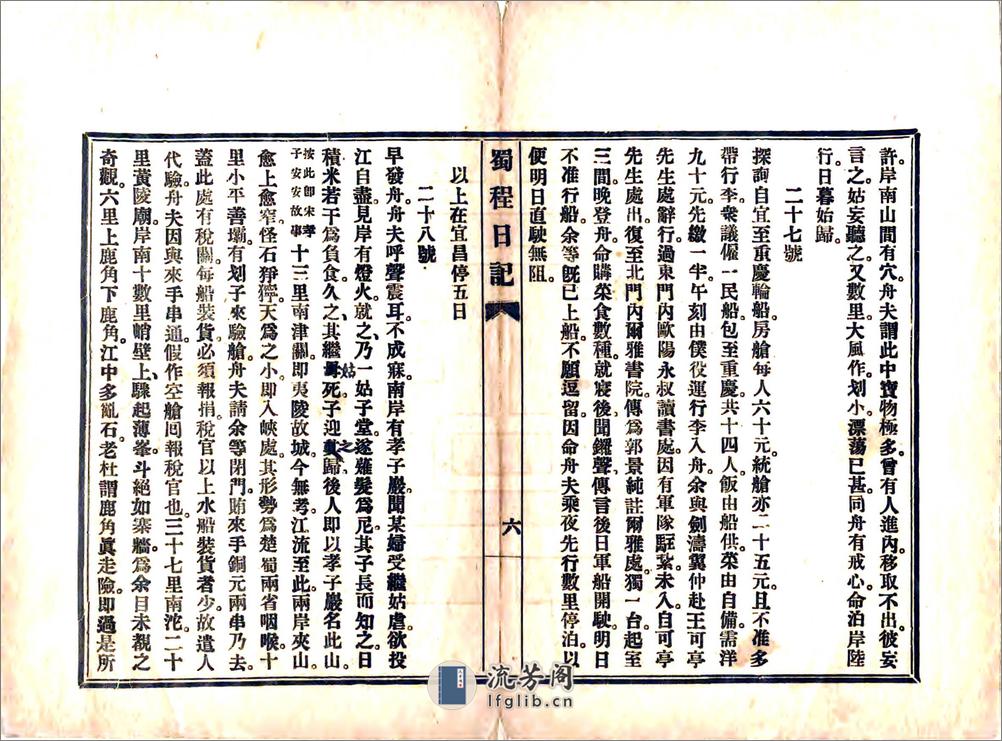 許岸南山間有穴。舟夫謂此中寶物極多。曾有人進內移取不出。彼妄
言之。姑妄聽之。又數里大風作。划小漂蕩已甚。同舟有戒心。命泊岸陸
行。日暮始歸。
二十七號
探詢自宜至重慶輪船房艙每人六十元。統艙亦二十五元。且不准多
帶行李。衆議僱一民船包至重慶。共十四人。飯由船供。菜由自備。需洋
九十元。先繳一半。午刻由僕役運行李入舟。余與劍濤翼仲赴王可亭
先生處辭行。過東門內歐陽永叔讀書處。因有軍隊駐紮未入。自可亭
先生處出。復至北門內爾雅書院。傳爲郭景純註爾雅處。獨一台起室
三間。晚登舟。命購菜食數種。就寢後聞鑼聲。傳言後日軍船開駛。明日
不准行船。余等旣已上船。不願逗留。因命舟夫乘夜先行數里停泊。以
便明日直駛無阻。
蜀程日記
六
以上在宜昌停五日
二十八號
早發。舟夫呼聲震耳。不成寐。南岸有孝子巖。聞某婦受繼姑虐。欲投
江自盡。見岸有燈火。就之。乃一姑子堂。遂薙髮爲尼。其子長而知之。日
積米若干爲負食。久之。其繼姑死。子迎之歸。後人即以孝子巖名此山。
按此卽宋孝
子安安故事
十三里南津關。卽夷陵故城。今無考。江流至此。兩岸夾山。
愈上愈窄。怪石猙獰。天爲之小。卽入峽處。其形勢爲楚蜀兩省咽喉。十
里小平善壩。有划子來驗艙。舟夫請余等閉門。賄來手銅元兩串乃去。
蓋此處有稅關。每船裝貨必須報捐。稅官以上水船裝貨者少。故遣人
代驗。舟夫因與來手串通。假作空艙囘報稅官也。三十七里南沱。二十
里黃陵廟。岸南十數里峭壁上。驟起薄峯。斗絕如寨牆。爲余目未覩之
奇觀。六里上鹿角下鹿角。江中多亂石。老杜謂鹿角眞走險。卽過是所
流芳阁
lfglib.cn